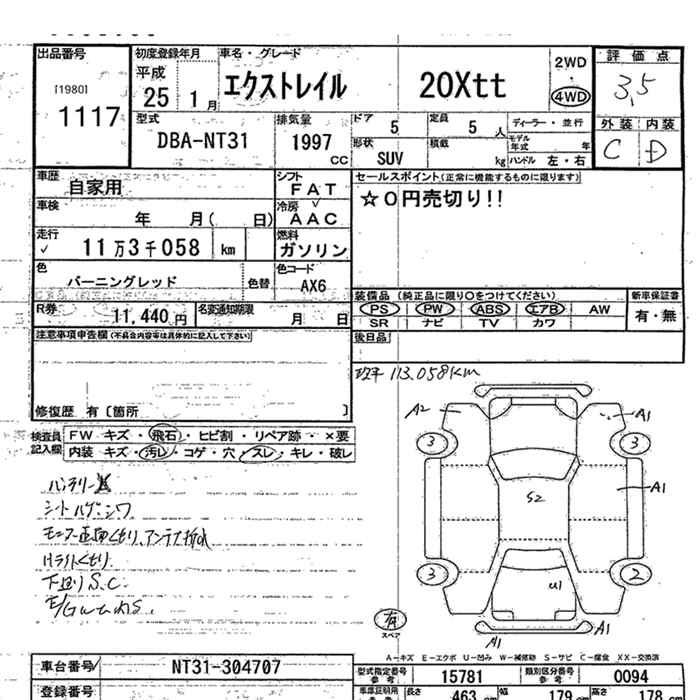 出品番号 初度登録年月 車名・グレード 評価点
[1980] 1117
平成 25 1月 エクストレイル 20Xtt 2WD・4WD 3,5
型式 DBA-NT31 排気量 1997 cc
ドア 5 定員 5人 ディーラー・並行
形状 SUV 積載 kg モデル年式 年 ハンドル 左・右
外装 内装
C D
車歴 自家用 シフト FAT
車検 年 月( 日) 冷房 AAC
走行 11万3千058 km 燃料 ガソリン
色 バーニングレッド 色替 色コード AX6
R券 11,440円 名変通知期限 月 日
セールスポイント(正常に機能するものに限ります)
☆0円売切り!!
装備品 (純正品に限り○をつけてください) 新車保証書
PS PW ABS エアB AW 有・無
SR ナビ TV カワ
後日品
注意事項申告欄(不具合内容等は具体的に記入して下さい)
修復歴 有〔箇所 〕
検査員記入欄 FW キズ・飛石・ヒビ割・リペア跡・×要
内装 キズ・汚レ・コゲ・穴・スレ・キレ・破レ
113.058KM
A2 A1
3 3
S2 A1
3 2
U1
有
スペア
A1 A1
シートハゲ.シワ
下廻りS.C
A-キズ E-エクボ U-凹み W-補修跡 S-サビ C-腐食 XX-交換済
車台番号 NT31-304707
型式指定番号 参考 15781 類別区分番号 参考 0094
登録番号
車車証明用 参考 長さ 463 cm 幅 179 cm 高さ 178 cm